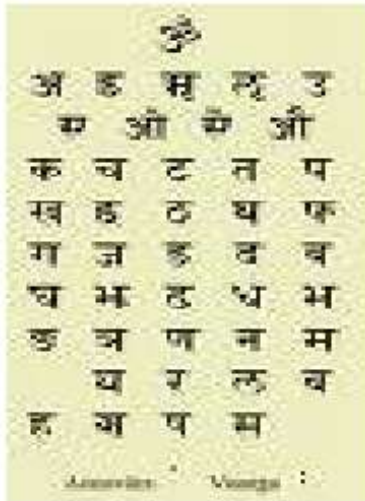 ॐ
अ इ ऋ ऌ उ
ए ओ ऐ औ
क च ट त प
ख छ ठ थ फ
ग ज ड द ब
घ झ ढ ध भ
ङ ञ ण न म
य र ल व
ह श ष स
Anusvāra ं Visarga ः